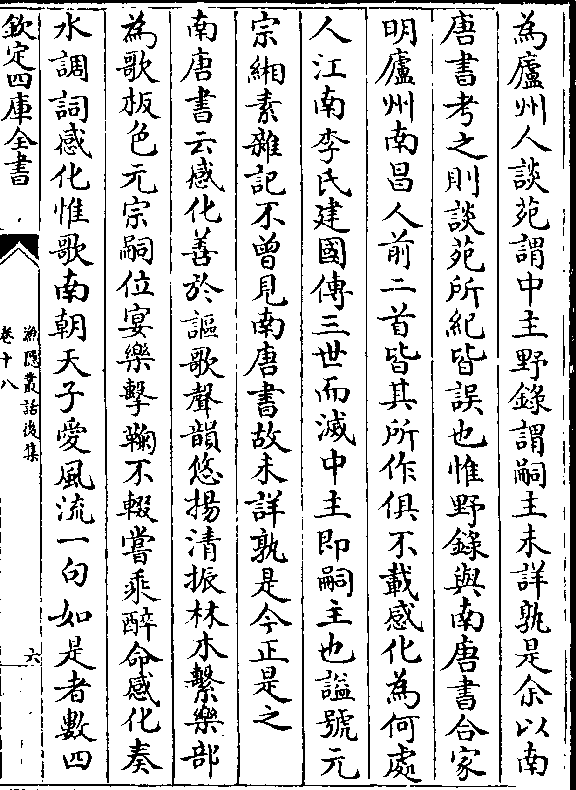 為廬州人談苑謂中主野錄謂嗣主未詳孰是余以南
唐書考之則談苑所紀皆誤也惟野錄與南唐書合家
明廬州南昌人前二首皆其所作俱不載感化為何處
人江南李氏建國傳三世而滅中主即嗣主也謚號元
宗緗素雜記不曾見南唐書故未詳孰是今正是之
南唐書云感化善於謳歌聲韻悠揚清振林木繫樂部
為歌板色元宗嗣位宴樂擊鞠不輟嘗乘醉命感化奏
水調詞感化惟歌南朝天子愛風流一句如是者數四
欽定四庫全書
漁隱叢話後集
卷十八
六